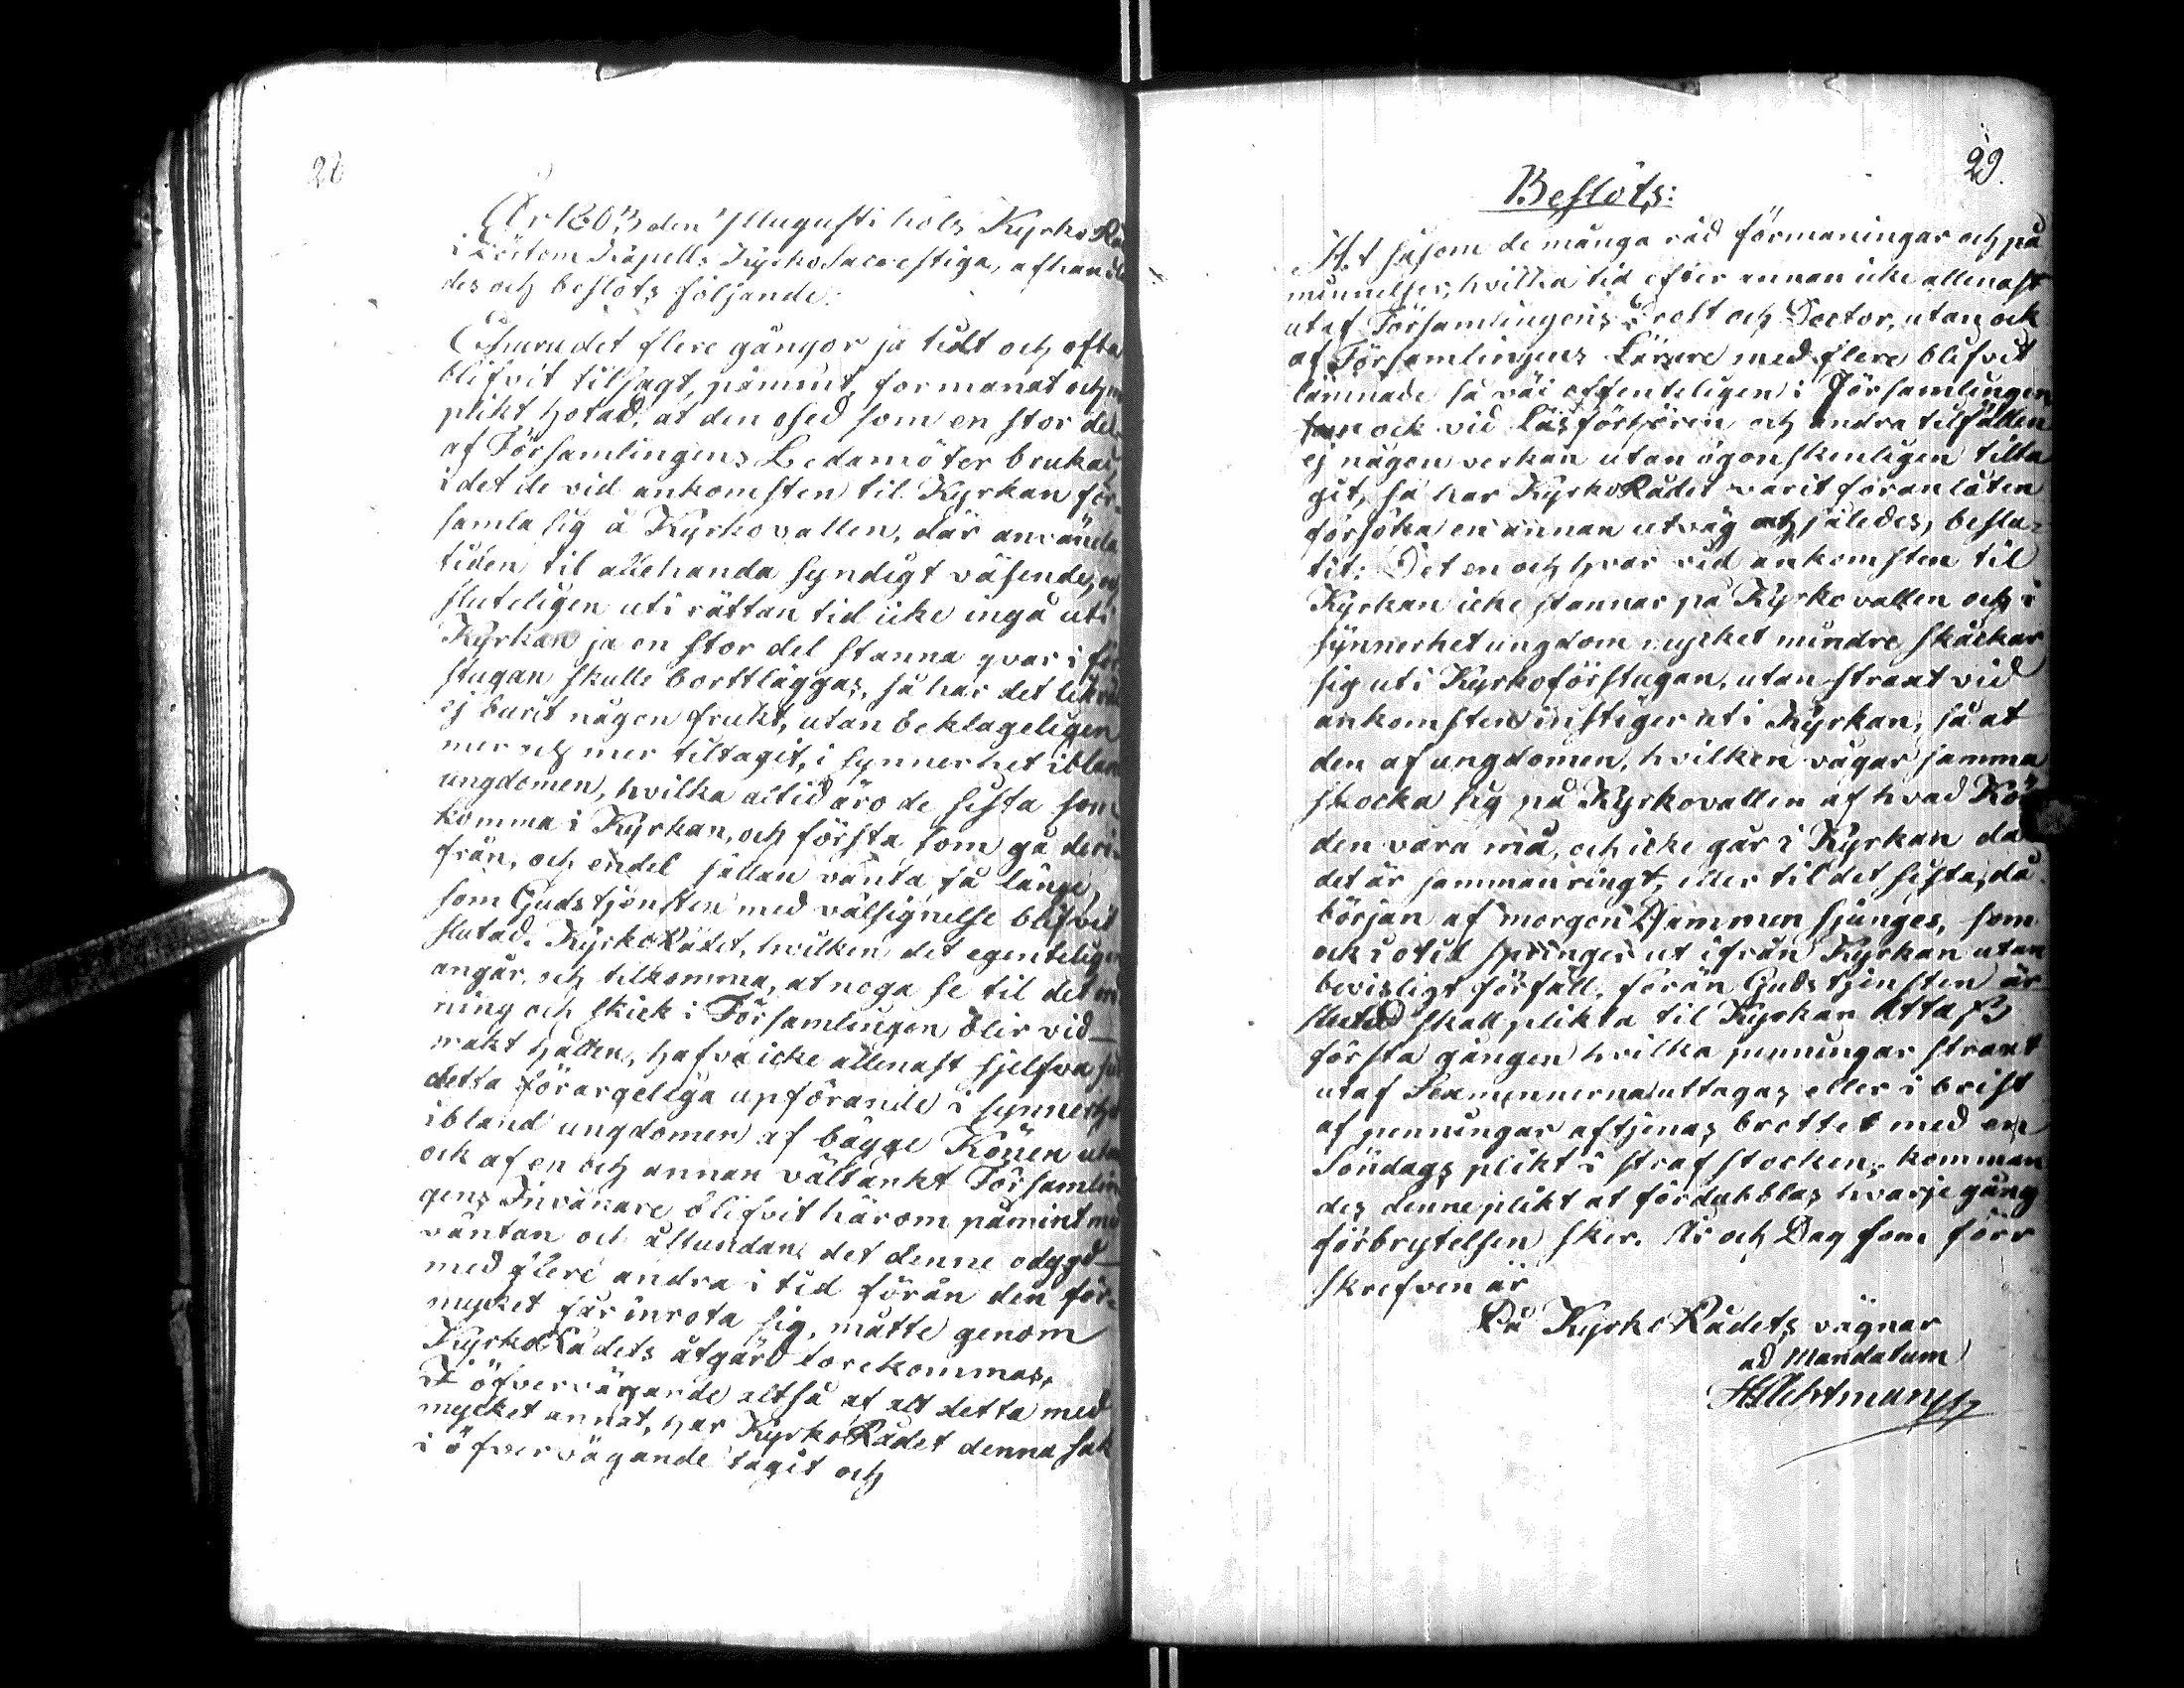 År 1803 den 7 Augusti höls Kyrko Rå
i Kapells Kyrko Sacrestiga, afhandla
des och beslöts följande:
Ehuru det flere gångor ja tidt och ofta
blifvit tilsagt, påmint, formanat och
plikt hotad, at den osed som en stor del
af Församlingens Ledamöter brukar
i det de vid ankomsten til Kyrkan för-
samla sig å Kyrkovallen, där använda
tiden til allehanda syndigt väsende, och
sluteligen uti rättan tid icke ingå uti
Kyrkan ja en stor del stanna qvar i för
stugan skulle borttläggas, så har det likväl
ej burit någon frukt, utan beklageligen
mer och mer tiltagit, i synnerhet ibland
ungdomen, hvilka altid äro de sista som
komma i Kyrkan, och första som gå deri-
från, och endel sällan vänta så länge,
som Gudstjensten med välsignelse blifvit
slutad. Kyrko Rådet, hvilken det egenteligen
angår, och tilkomma, at noga se til det
ning och skick i Församlingen blir vid-
makt hållen, hafva icke allenast sjelfva
detta förargeliga upförande i synnerhet
ibland ungdomen af bägge Könen utan
ock af en och annan vältänkt Församlin
gens Invånare blifvit härom påmint med
väntan och åstundan det denne odygd
med flere andra i tid förän den för-
mycket får inrota sig, måtte genom
Kyrko Rådets åtgärd forekommas.
I öfvervägande altså af alt detta med
mycket annat, har Kyrko Rådet denna sak
i öfvervägande tagit och
29.
Beslöts:
At såsom de många råd förmaningar och på
minnelser, hvilka tid efter annan icke allenast
utaf Församlingens Prost och Doctor, utan ock
af Församlingens Lärare med flere blifvit
lämnade så väl offenteligen i Församlingen
som ock vid Läsförhören och andra tilfällen
ej någon verkan utan ögonskenligen tilta
git, så har Kyrko Rådet varit föranlåten
försöka en annan utväg och således, beslu-
tit: Det en och hvar vid ankomsten til
Kyrkan icke stannar på Kyrkovallen och i
synnerhet ungdom mycket mindre skåckar
sig uti Kyrkoförstugan, utan straxt vid
ankomsten instiger uti Kyrkan, så at
den af ungdomen, hvilken vågar samma
skocka sig på Kyrkovallen af hvad Kön
den vara må, och icke går i Kyrkan då
det är sammanringt, eller til det sista, då
början af morgon Psammen sjunges, som
ock i otid springer ut ifrån Kyrkan utan
bevisligt förfall, förän Gudstjensten är
slutad skall plikta til Kyrkan Åtta ß
första gången hvilka penningar straxt
utaf Sexmännerna uttagas eller i brist
af penningar aftjenas brottet med en
Söndags plikt i straf stocken; komman
des denne plikt at fördubblas hvarje gång
förbrytelsen sker. År och Dag som förr
skrefven är
På Kyrko Rådets vägnar
ad Mandatum